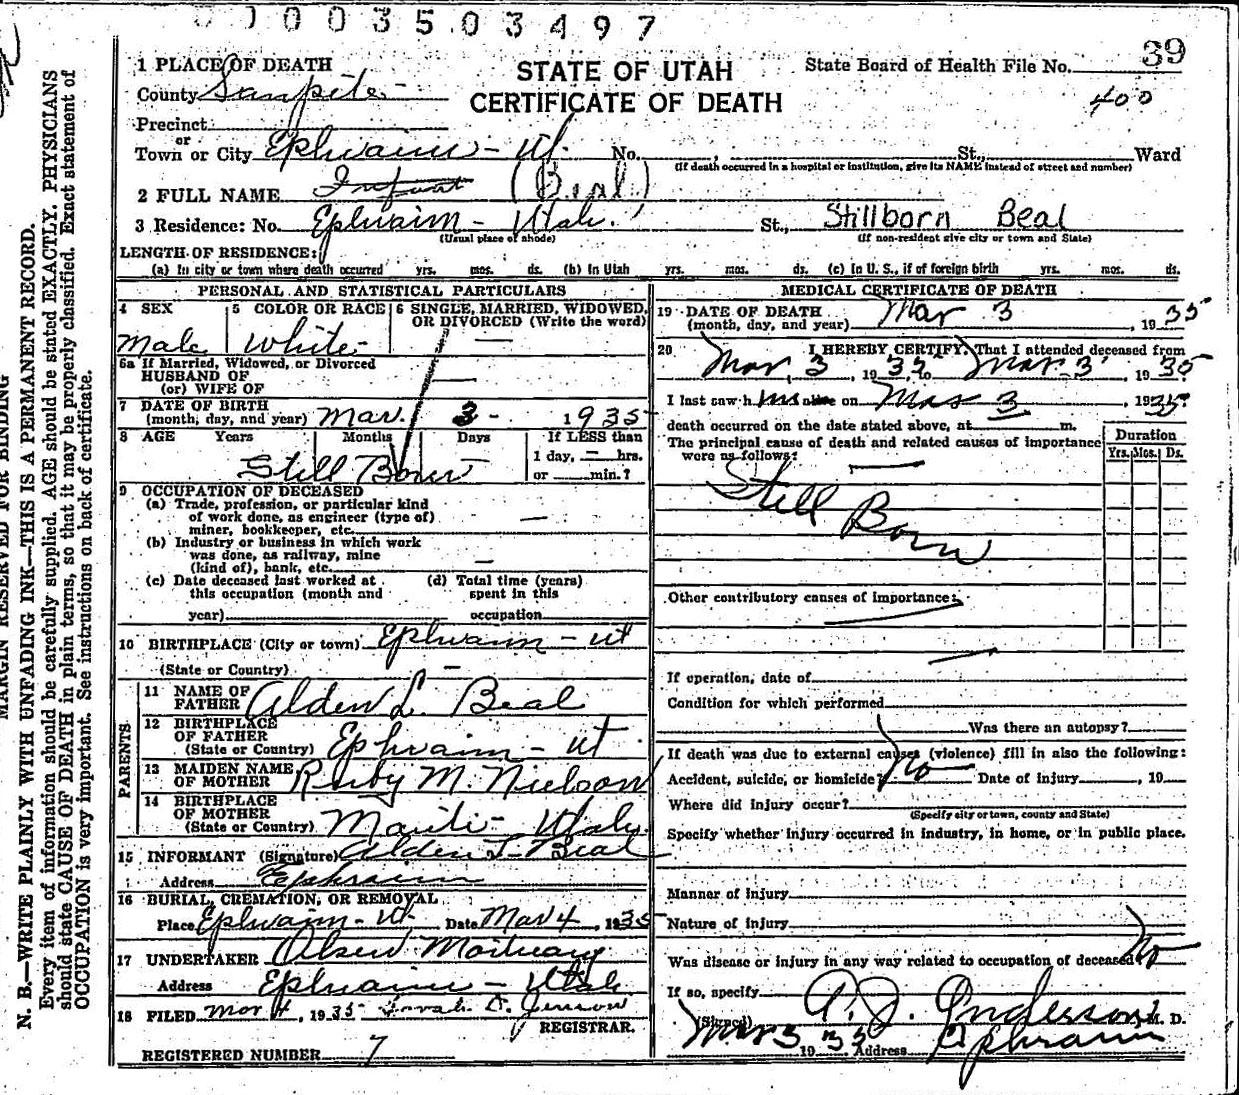 0 0 0 3 5 0 3 4 9 7
39
400
STATE OF UTAH
CERTIFICATE OF DEATH
State Board of Health File No.
1 PLACE OF DEATH
County Sanpete
Precinct
or
Town or City Ephraim - Ut. No. , St., Ward
(If death occurred in a hospital or institution, give its NAME instead of street and number)
2 FULL NAME Infant (Beal)
3 Residence: No. Ephraim - Utah. St., Stillborn Beal
(Usual place of abode) (If non-resident give city or town and State)
LENGTH OF RESIDENCE:
(a) In city or town where death occurred yrs. mos. ds. (b) In Utah yrs. mos. ds. (c) In U. S., if of foreign birth yrs. mos. ds.
PERSONAL AND STATISTICAL PARTICULARS
4 SEX 5 COLOR OR RACE 6 SINGLE, MARRIED, WIDOWED, OR DIVORCED (Write the word)
Male White —
6a If Married, Widowed, or Divorced
HUSBAND OF
(or) WIFE OF —
7 DATE OF BIRTH
(month, day, and year) Mar. 3 - 1935
8 AGE Years Months Days If LESS than
1 day, — hrs.
or min.?
Still Born
9 OCCUPATION OF DECEASED
(a) Trade, profession, or particular kind
of work done, as engineer (type of)
miner, bookkeeper, etc. —
(b) Industry or business in which work
was done, as railway, mine
(kind of), bank, etc. —
(c) Date deceased last worked at (d) Total time (years)
this occupation (month and spent in this
year) occupation
10 BIRTHPLACE (City or town) Ephraim - Ut
(State or Country) —
PARENTS
11 NAME OF
FATHER Alden L. Beal
12 BIRTHPLACE
OF FATHER
(State or Country) Ephraim - Ut
13 MAIDEN NAME
OF MOTHER Ruby M. Nielson
14 BIRTHPLACE
OF MOTHER
(State or Country) Manti - Utah.
15 INFORMANT (Signature) Alden L. Beal
Address Ephraim
16 BURIAL, CREMATION, OR REMOVAL
Place Ephraim - Ut. Date Mar 4, 1935
17 UNDERTAKER Olsen Mortuary
Address Ephraim - Utah
18 FILED Mar 4, 1935 D. Jenson
REGISTRAR.
REGISTERED NUMBER 7
MEDICAL CERTIFICATE OF DEATH
19 DATE OF DEATH
(month, day, and year) Mar 3, 1935
20 I HEREBY CERTIFY, That I attended deceased from
Mar 3, 1935, to Mar 3, 1935
I last saw h im alive on Mar 3, 1935
death occurred on the date stated above, at m.
The principal cause of death and related causes of importance
were as follows:
Duration
Yrs. Mos. Ds.
Still Born
Other contributory causes of importance:
If operation, date of
Condition for which performed
Was there an autopsy?
If death was due to external causes (violence) fill in also the following:
Accident, suicide, or homicide? No Date of injury , 19
Where did injury occur?
(Specify city or town, county and State)
Specify whether injury occurred in industry, in home, or in public place.
Manner of injury
Nature of injury
Was disease or injury in any way related to occupation of deceased No
If so, specify
(Signed) A. J. Anderson, M. D.
Mar 3 1935 Address Ephraim
MARGIN RESERVED FOR BINDING
N. B.—WRITE PLAINLY WITH UNFADING INK—THIS IS A PERMANENT RECORD.
Every item of information should be carefully supplied. AGE should be stated EXACTLY. PHYSICIANS
should state CAUSE OF DEATH in plain terms, so that it may be properly classified. Exact statement of
OCCUPATION is very important. See instructions on back of certificate.